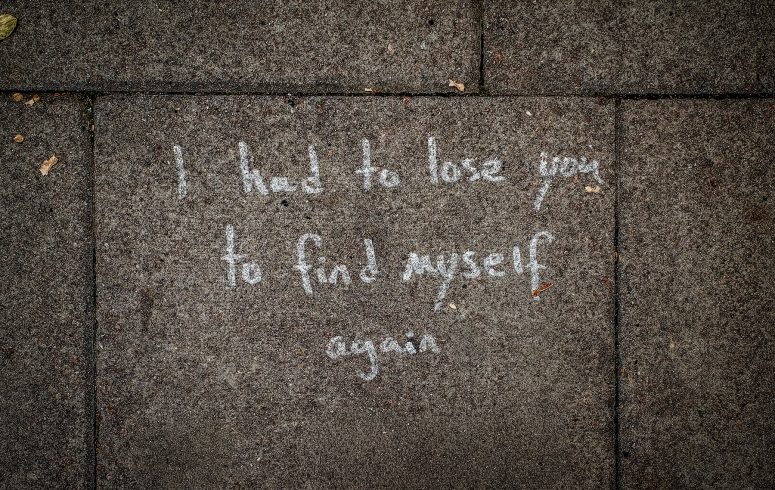 I had to lose you
to find myself
again